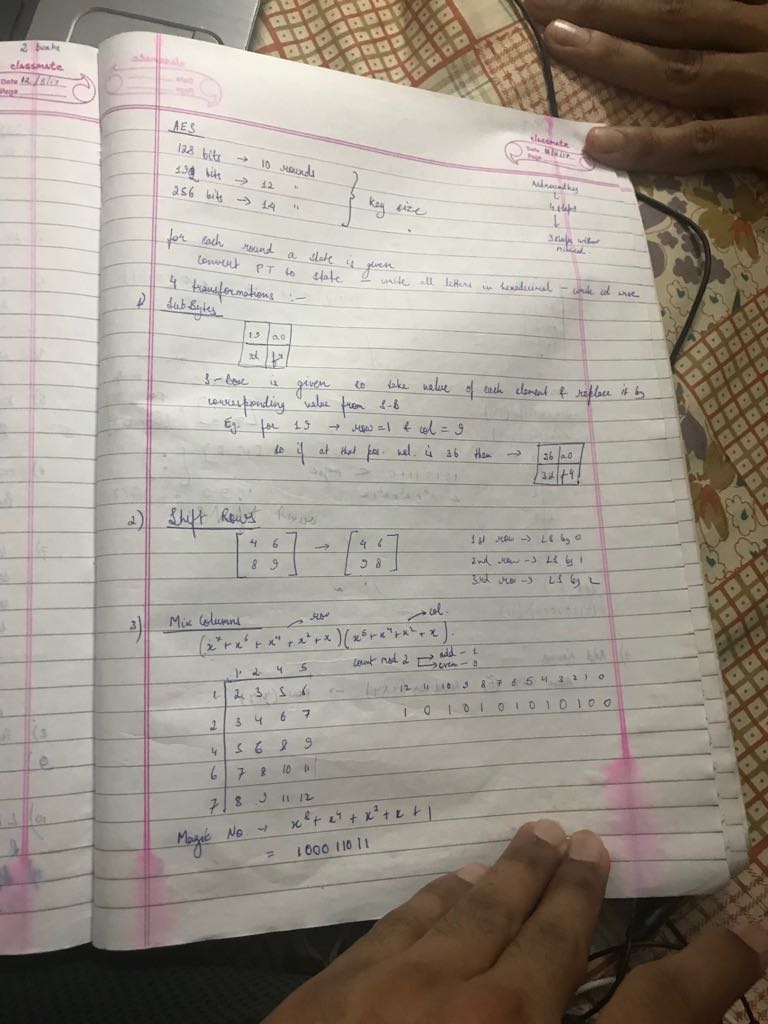 2 books
classmate
Date 12/8/17
Page
classmate
Date
Page
AES
128 bits → 10 rounds
192 bits → 12 "
256 bits → 14 "
} Key size
Addroundkey
↓
4 steps
↓
3 steps without
mixcol
for each round a state is given
convert PT to state – write all letters in hexadecimal – write col. wise
4 transformations :–
1) SubBytes
19 a0
3d f4
S-Box is given so take value of each element & replace it by
corresponding value from S-B
Eg. for 19 → row = 1 & col = 9
so if at that pos. val. is 36 then →
36 a0
3d f4
2) Shift Rows
4 6 → 4 6
8 9 9 8
1st row → LS by 0
2nd row → LS by 1
3rd row → LS by 2
3) Mix Columns → row → col.
(x⁷+x⁶+x⁴+x²+x)(x⁵+x⁴+x²+x).
count mod 2 → odd – 1
→ even – 0
1 2 4 5
1 2 3 5 6
2 3 4 6 7
4 5 6 8 9
6 7 8 10 11
7 8 9 11 12
12 11 10 9 8 7 6 5 4 3 2 1 0
1 0 1 0 1 0 1 0 1 0 1 0 0
Magic No → x⁸ + x⁴ + x³ + x + 1
= 100011011